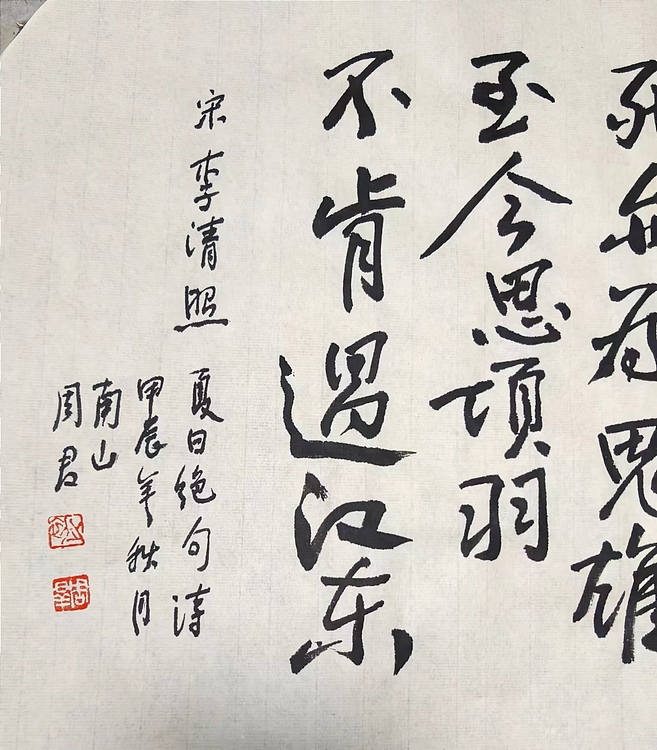 死亦为鬼雄
至今思項羽
不肯過江东
宋李清照 夏日绝句诗
甲辰年秋月
南山
周君